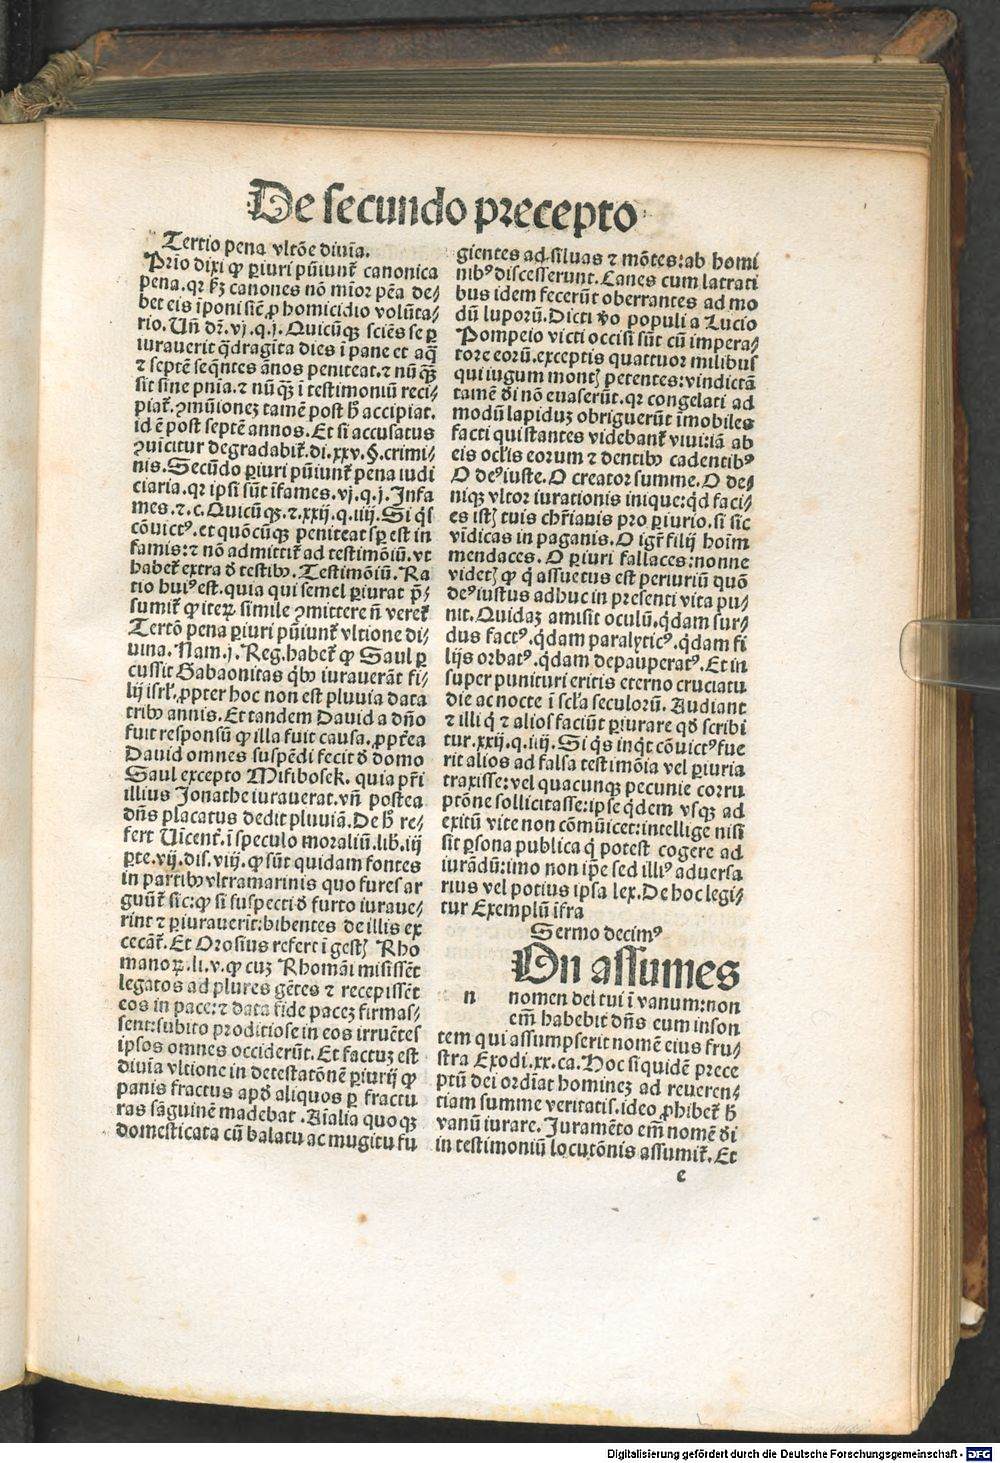 De secundo precepto
Tertio pena vltōe diuīa.
Prio dixi ꝙ ꝑiuri pūiunt᷑ canonica
pena. qꝛ ẜꝫ canones nō mīor pēa de⸗
bet eis īponi sic̄ ꝓ homicidio volūta⸗
rio. Vn̄ dr̄. vj. q. j. Quicūqꝫ sciēs se ꝑ
iurauerit q̄dragīta dies ī pane et aq̄
⁊ septē seq̄ntes annos peniteat. ⁊ nū qꝫ
sit sine pnīa. ⁊ nū qꝫ ī testimoniū reci⸗
piat᷑. ꝯmūionez tamē post h̄ accipiat.
id ē post septē annos. Et si accusatus
ꝯuīcitur degradabit᷑. di. xxv. §. crimi⸗
nis. Secūdo ꝑiuri pūiunt᷑ pena iudi
ciaria. qꝛ ipsi sūt īfames. vj. q. j. Infa
mes. ⁊. c. Quicūqꝫ. ⁊. xxij. q. iiij. Si q̇s
cōuict⁹. et quōcūqꝫ peniteat sꝑ est in
famis: ⁊ nō admittit᷑ ad testimōiū. vt
habet᷑ extra ð testibꝰ. Testimōiū. Ra
tio huiꝰ est. quia qui semel ꝑiurat p̄⸗
sumit᷑ ꝙ iteꝝ simile ꝯmittere n̄ veret᷑
Tertō pena ꝑiuri pūiunt᷑ vltione di⸗
uina. Nam. j. Reg. habet᷑ ꝙ Saul ꝑ
cussit Gabaonitas q̇bꝰ iurauerāt fi⸗
lij isrl̓. ꝓpter hoc non est pluuia data
tribꝰ annis. Et tandem Dauid a dn̄o
fuit responsū ꝙ illa fuit causa. ꝓpt̄ea
Dauid omnes suspēdi fecit ð domo
Saul excepto Mifibosek. quia pr̄i
illius Jonathe iurauerat. vn̄ postea
dn̄s placatus dedit pluuiā. De h̄ re⸗
fert Uīcent᷑. ī speculo moraliū. lib. iij
ꝑte. vij. dis. viij. ꝙ sūt quidam fontes
in partibꝰ vltramarinis quo fures ar
guūt᷑ sic: ꝙ si suspecti ð furto iuraue⸗
rint ⁊ ꝑiurauerīt: bibentes de illis ex
cecāt᷑. Et Orosius refert ī gestꝭ Rho
manoꝝ. li. v. ꝙ cuꝫ Rhomāi misissēt
legatos ad plures gētes ⁊ recepissēt
eos in pace: ⁊ data fide pacez firmas⸗
sent: subito proditiose in eos irruētes
ipsos omnes occiderūt. Et factuꝫ est
diuīa vltione in detestatōnē ꝑiurij ꝙ
panis fractus apð aliquos ꝑ fractu
ras saguinē madebat. Aīalia quoqꝫ
domesticata cū balatu ac mugitu fu
gientes ad siluas ⁊ mōtes: ab homi
nibꝰ discesserunt. Canes cum latrati
bus idem fecerūt oberrantes ad mo
dū luporū. Dicti ꝟo populi a Lucio
Pompeio victi occisi sūt cū impera⸗
tore eorū. exceptis quattuor milibus
qui iugum montꝭ petentes: vindictā
tamē ði nō euaserūt. qꝛ congelati ad
modū lapiduꝫ obriguerūt īmobiles
facti qui stantes videbant᷑ viui: iā ab
eis ocl̓is eorum ⁊ dentibꝰ cadentibꝰ
O deꝰ iuste. O creator summe. O de⸗
niqꝫ vltor iurationis inique: q̇d faci⸗
es istꝭ tuis chr̄ianis pro ꝑiurio. si sic
vīdicas in paganis. O igr̄ filij hoīm
mendaces. O ꝑiuri fallaces: nonne
videtꝭ ꝙ q̇ assuetus est periuriū quō
deꝰ iustus adhuc in presenti vita pu⸗
nit. Quidaꝫ amisit oculū. q̇dam sur⸗
dus factꝰ. q̇dam paralyticꝰ. q̇dam fi
lijs orbatꝰ. q̇dam depauperatꝰ. Et in
super punituri eritis eterno cruciatu
die ac nocte ī scl̓a seculorū. Audiant
⁊ illi q̇ ⁊ alios faciūt ꝑiurare qð scribi
tur. xxij. q. iiij. Si q̇s inq̇t cōuictꝰ fue
rit alios ad falsa testimōia vel ꝑiuria
traxisse: vel quacunqꝫ pecunie corru
ptōne sollicitasse: ipse q̇dem vsqꝫ ad
exitū vite non cōmūicet: intellige nisi
sit ꝑsona publica q̇ potest cogere ad
iurādū: imo non ip̄e sed illiꝰ aduersa
rius vel potius ipsa lex. De hoc legi⸗
tur Exemplū īfra
Sermo decimꝰ
On assumes
n nomen dei tui ī vanum: non
em̄ habebit dn̄s eum inson
tem qui assumpserit nomē eius fru⸗
stra Exodi. xx. ca. Hoc siquidē prece
ptū dei ordīat hominez ad reueren⸗
tiam summe veritatis. ideo ꝓhibet᷑ h̄
vanū iurare. Juramēto em̄ nomē ði
in testimoniū locutōnis assumit᷑. Et
e
Digitalisierung gefördert durch die Deutsche Forschungsgemeinschaft - DFG